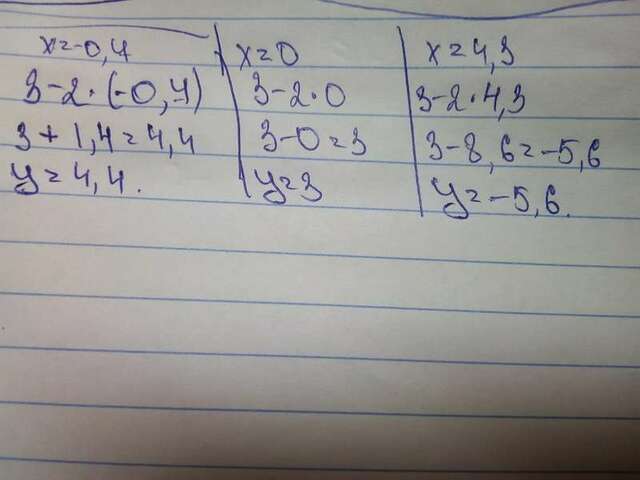 x=-0,4
3-2·(-0,4)
3+1,4=4,4
y=4,4.
x=0
3-2·0
3-0=3
y=3
x=4,3
3-2·4,3
3-8,6=-5,6
y=-5,6.